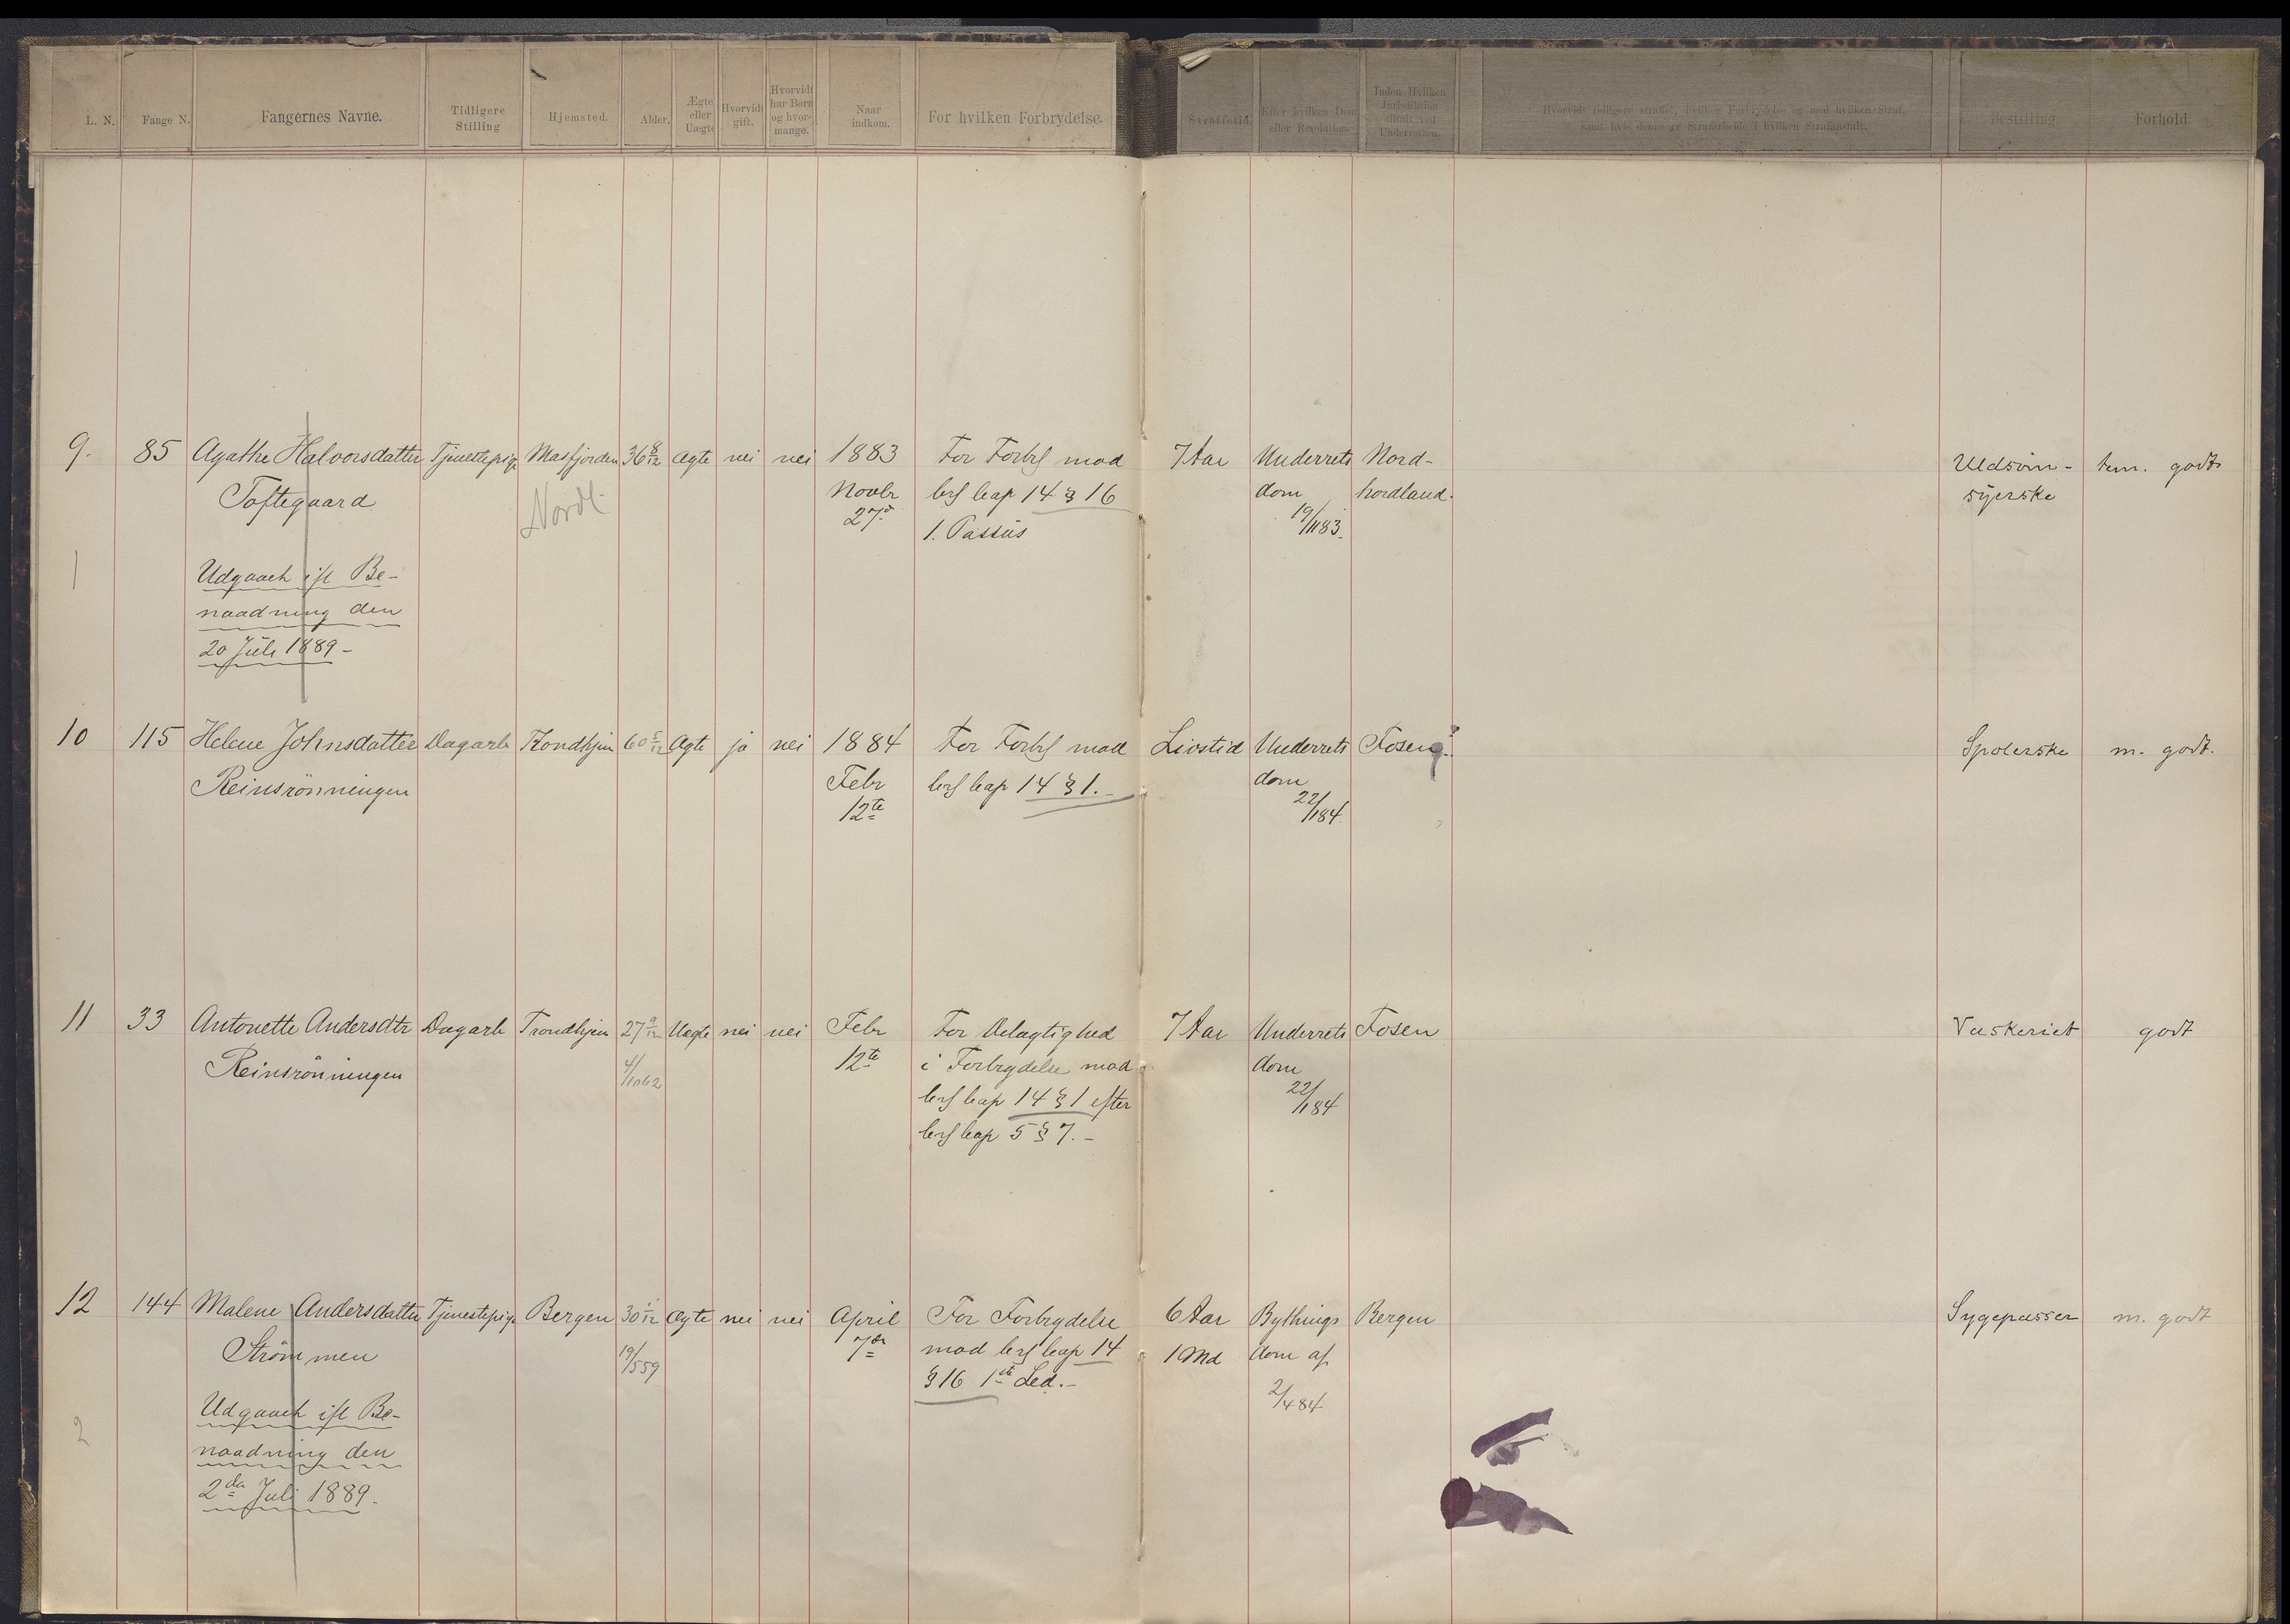 L. N.
Fange N.
Fangernes Navne.
Tidligere
Stilling
Hjemsted.
Alder.
Ægte
eller
Uægte
Hvorvidt
gift.
Hvorvidt
har Børn
og hvor-
mange.
Naar
indkom.
For hvilken Forbrydelse.
Straffetid.
Efter hvilken Dom
eller Resolution.
Inden Hvilken
Jurisdiktion
tiltalt ved
Underretten.
Hvorvidt tidligere straffet, hvilken Forbrydelse og med hvilken Straf,
samt hvis denne er Strafarbeide i hvilken Strafanstalt.
Bestilling
Forhold
9. 85 Agathe Halvorsdatter Tjenestepige Masfjorden 36 8/12 Ægte nei nei 1883 For Forb mod 7 Aar Underrets Nord- Uldsøm- tem. godt
Toftegaard Nordl. Novbr 14 § 16 dom hordland. syerske
27d 1. Passus 19/11 83.
1
Udgaaet ifl Be-
naadning den
20 Juli 1889 -
10 115 Helene Johnsdatter Dagarb Trondhjem 60 5/12 Ægte ja nei 1884 For Forb mod Livstid Underrets Fosen Spolerske m. godt.
Reinsrönningen Febr 14 § 1. - dom
12te 22/1 84.
11 33 Antonette Andersdtr Dagarb Trondhjem 27 9/12 Uægte nei nei Febr For Delagtighed 7 Aar Underrets Fosen Vaskeriet godt
Reinsrönningen 12te i Forbrydelse mod dom
14 § 1 efter 22/1 84
5 § 7. -
12 144 Malene Andersdatter Tjenestepige Bergen 30 Ægte nei nei April For Forbrydelse 6 Aar Bythings Bergen Sygepasser m. godt
Strömmen 19/5 59 7de mod 14 1 Md dom af
§ 16 1ste Led. - 2/4 84
2
Udgaaet ifl Be-
naadning den
2den Juli 1889.